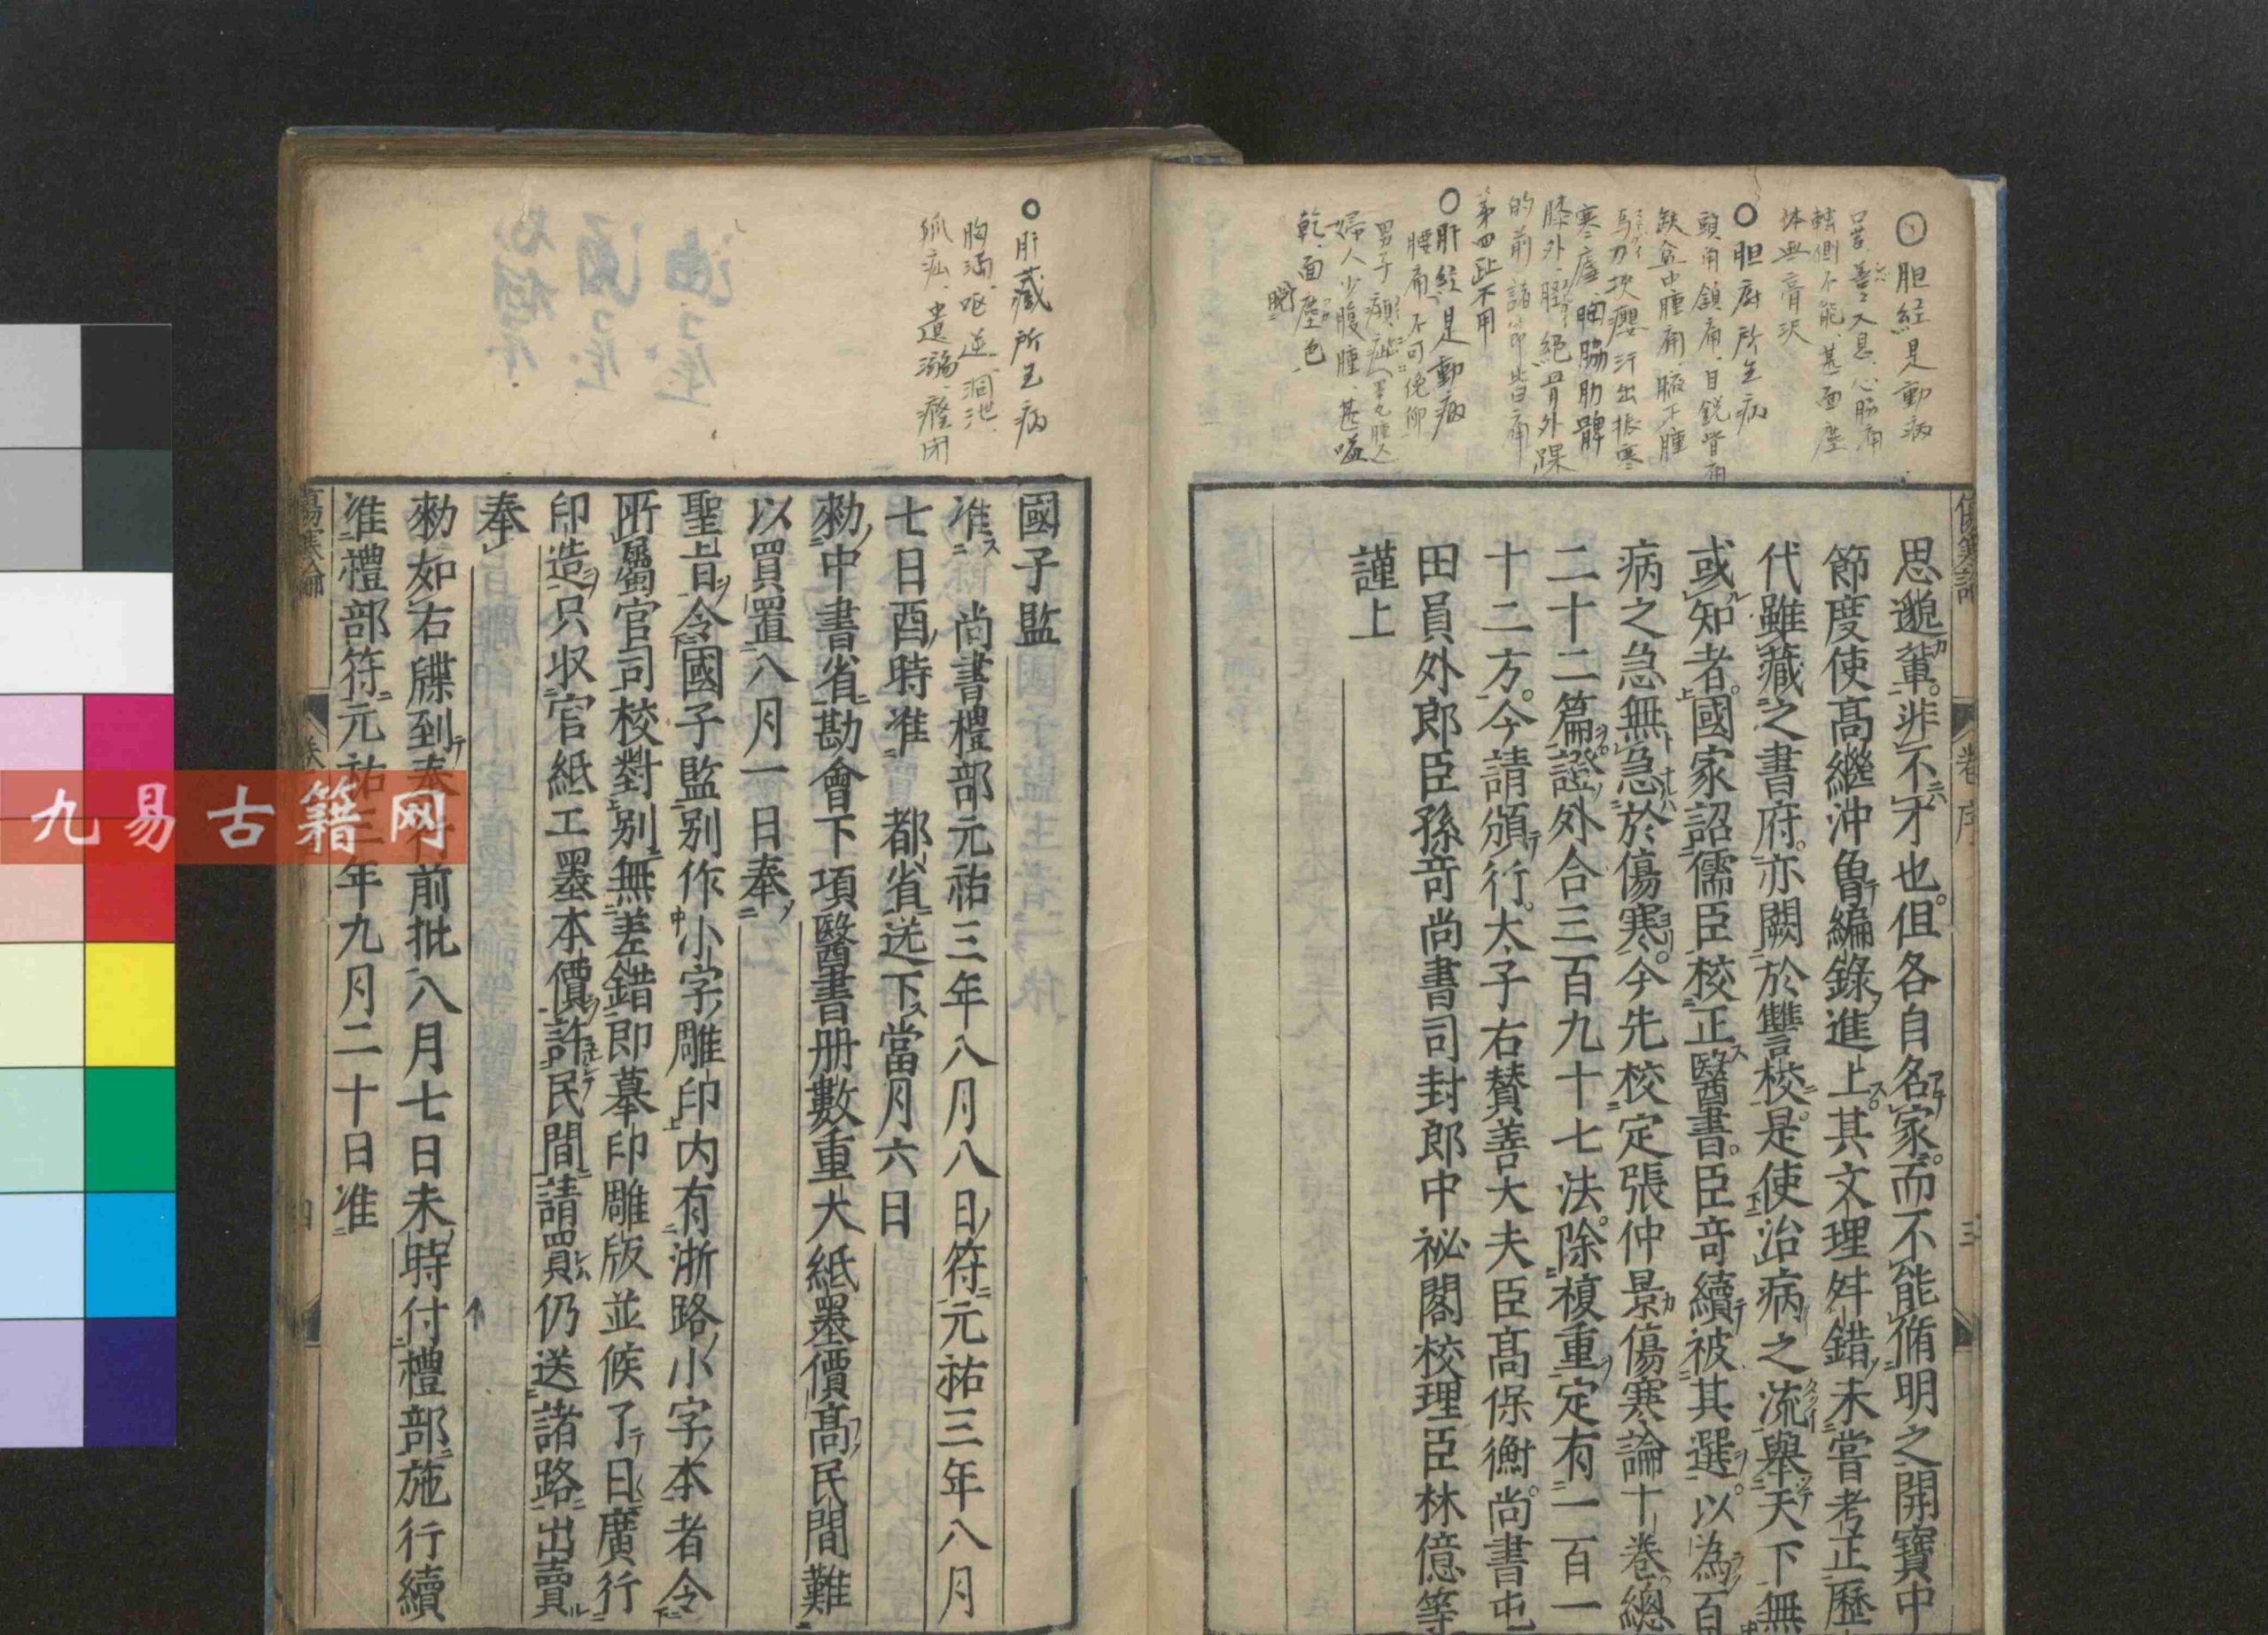 胆経是動病
口苦、善大息、心脇痛
轉側不能、甚面塵
体無膏沢
胆府所生病
頭角頷痛、目鋭眥痛
缺盆中腫痛、腋下腫
馬刀挟癭汗出振寒
寒瘧、胸脇肋髀
膝外、脛絶骨外踝
的前諸節皆痛
第四趾不用
肝経是動病
腰痛不可俛仰
男子㿉疝(睾丸腫込
婦人少腹腫、甚嗌
乾、面塵色、
脱
傷寒論
卷序
三
思邈輩。非不才也。但各自名家。而不能脩明之開寶中
節度使高繼沖曾編錄進上。其文理舛錯未嘗考正歷
代雖藏之書府。亦闕於讐校。是使治病之流舉天下無
或知者。國家詔儒臣校正醫書。臣奇續被其選。以為百
病之急無急於傷寒。今先校定張仲景傷寒論十卷總
二十二篇證外合三百九十七法。除複重定有一百一
十二方。今請頒行。太子右贊善大夫臣高保衡。尚書屯
田員外郎臣孫奇尚書司封郎中祕閣校理臣林億等
謹上
肝藏所生病
胸満、呕逆、洞泄、
狐疝、遺溺、癃閉
國子監
准 尚書禮部元祐三年八月八日符元祐三年八月
七日酉時准 都省送下當月六日
勑中書省勘會下項醫書册數重大紙墨價高民間難
以買置八月一日奉
聖旨令國子監别作小字雕印内有浙路小字本者令
所屬官司校對别無差錯即摹印雕版並候了日廣行
印造只収官紙工墨本價許民間請買仍送諸路出賣
奉
勑如右牒到奉行前批八月七日未時付禮部施行續
准禮部符元祐三年九月二十日准
傷寒論
四
九易古籍网